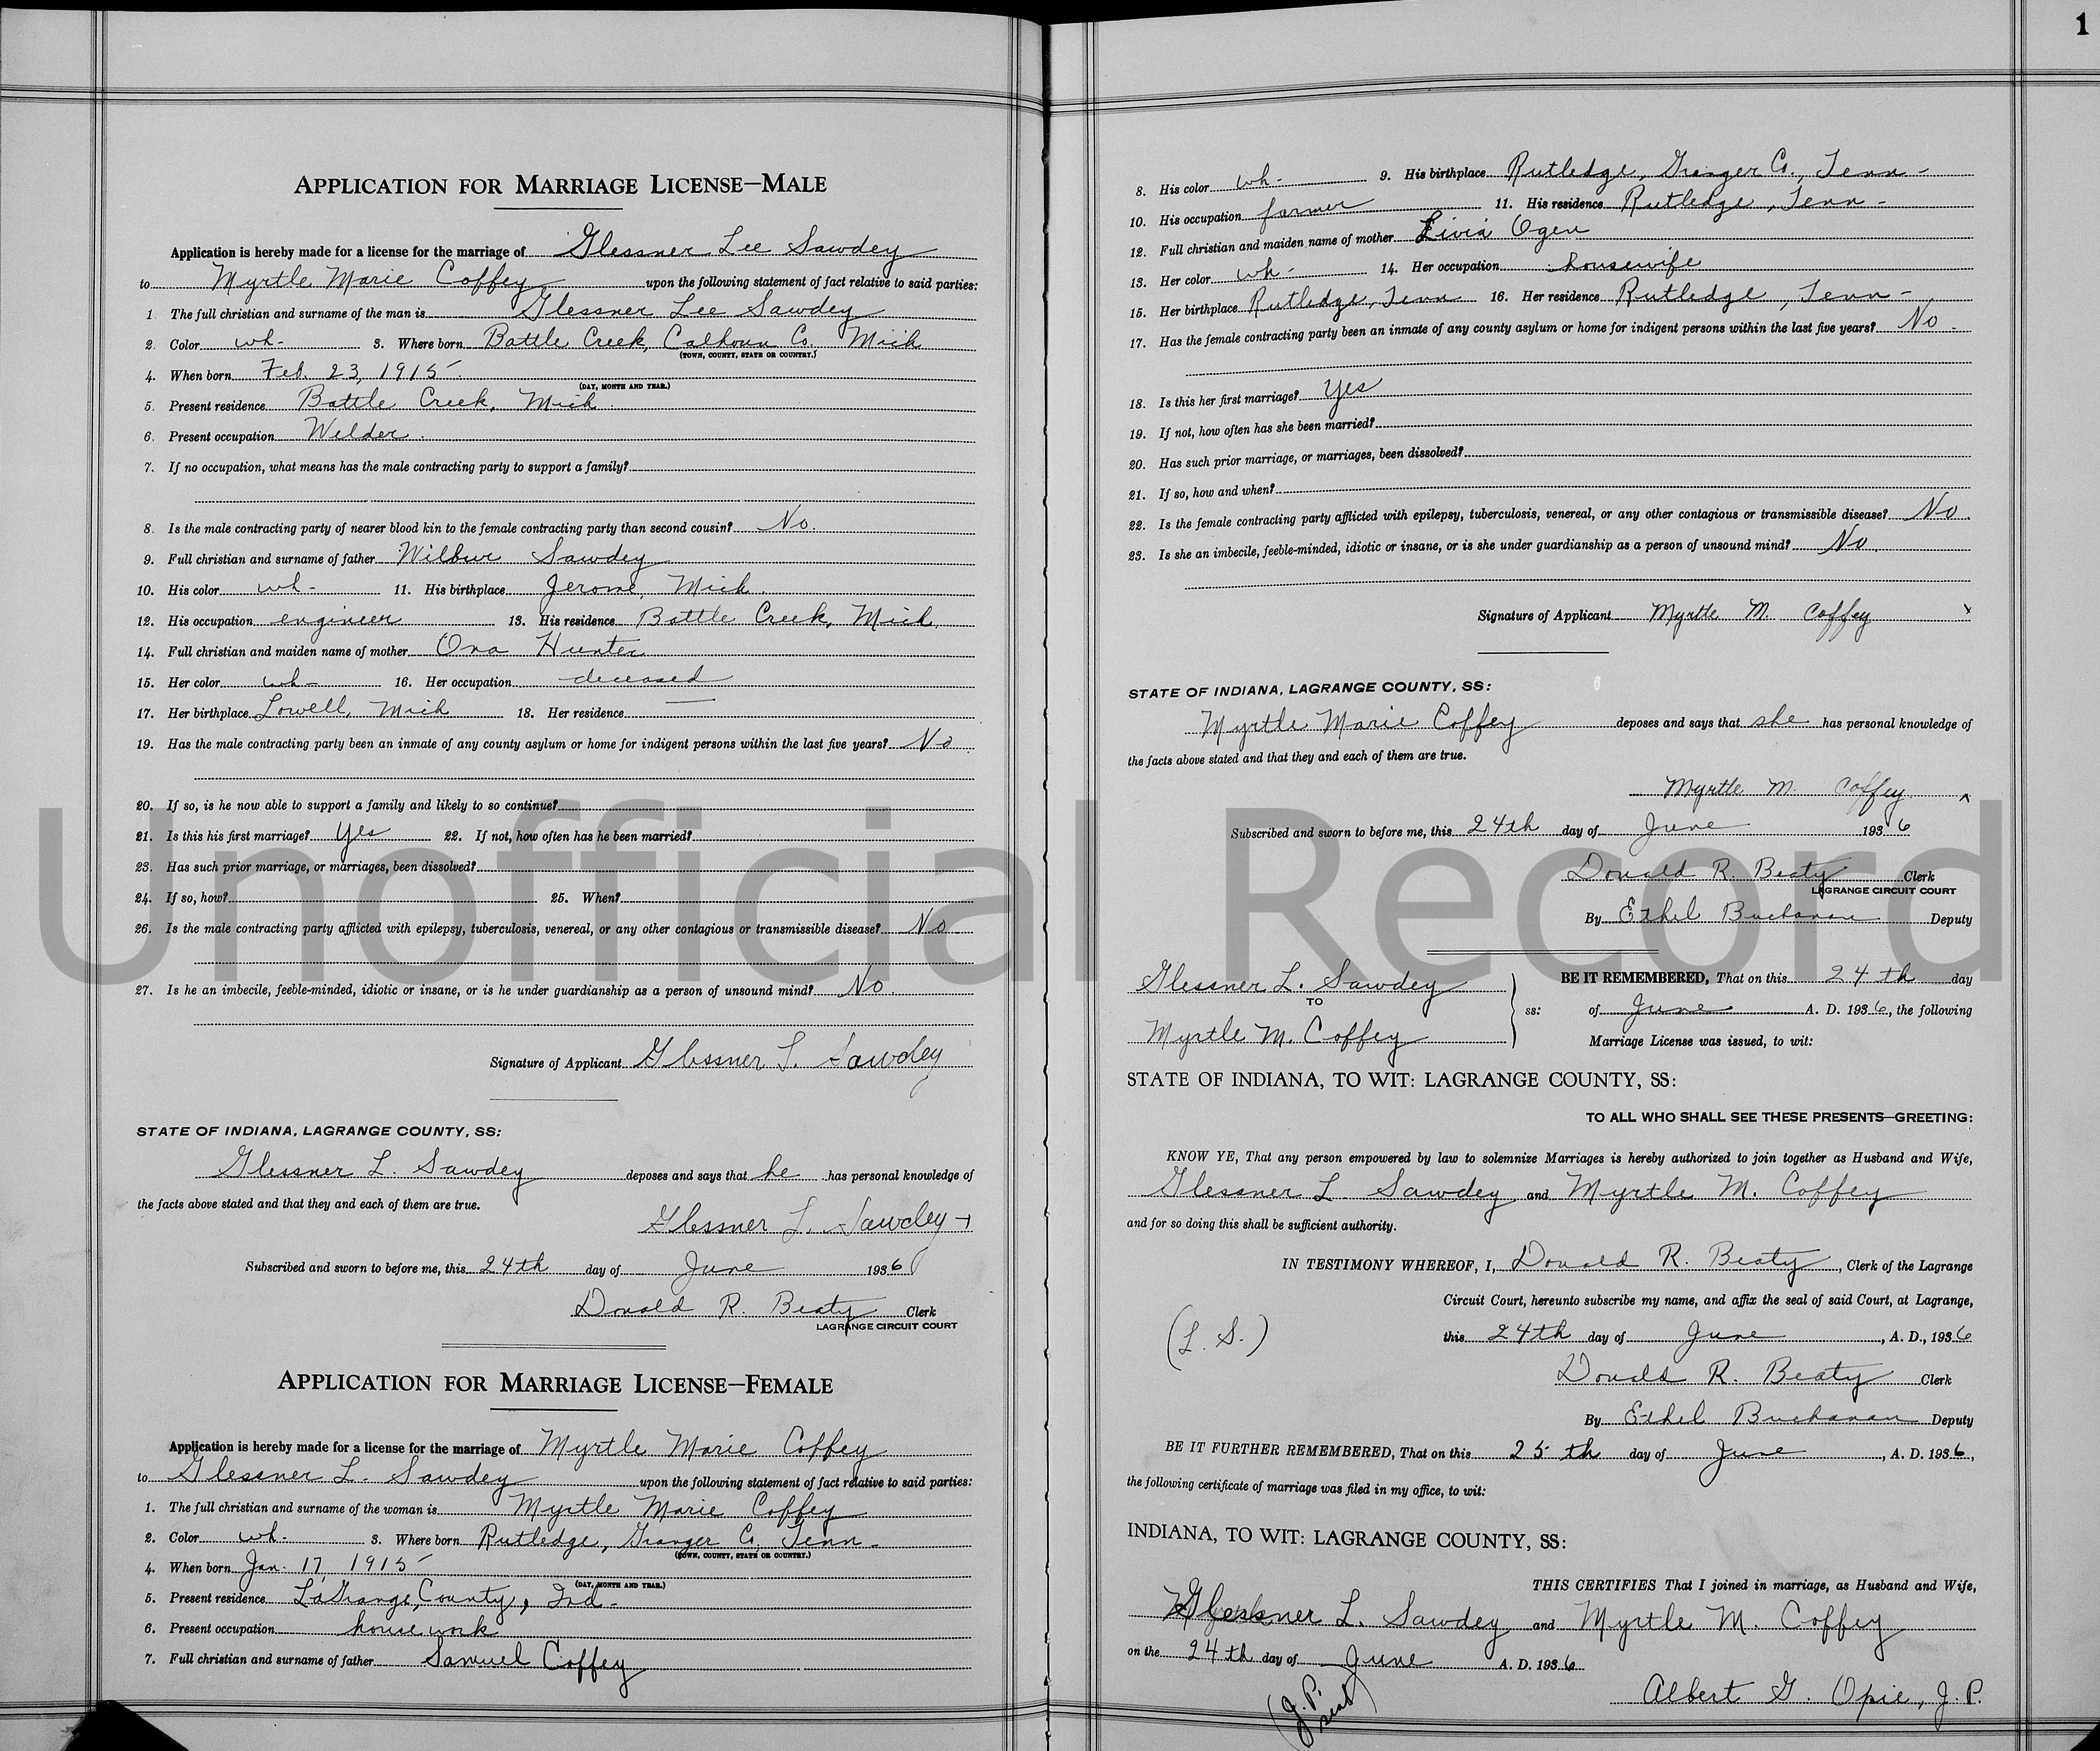 1
APPLICATION FOR MARRIAGE LICENSE—MALE
Application is hereby made for a license for the marriage of Glessner Lee Sawdey
to Myrtle Marie Coffey upon the following statement of fact relative to said parties:
1. The full christian and surname of the man is Glessner Lee Sawdey
2. Color wh- 3. Where born Battle Creek, Calhoun Co. Mich
(TOWN, COUNTY, STATE OR COUNTRY.)
4. When born Feb. 23, 1915
(DAY, MONTH AND YEAR.)
5. Present residence Battle Creek, Mich.
6. Present occupation Welder.
7. If no occupation, what means has the male contracting party to support a family?
8. Is the male contracting party of nearer blood kin to the female contracting party than second cousin? No.
9. Full christian and surname of father Wilbur Sawdey
10. His color wh- 11. His birthplace Jerome, Mich.
12. His occupation engineer 13. His residence Battle Creek, Mich.
14. Full christian and maiden name of mother Ona Hunter
15. Her color wh- 16. Her occupation deceased
17. Her birthplace Lowell, Mich 18. Her residence —
19. Has the male contracting party been an inmate of any county asylum or home for indigent persons within the last five years? No
20. If so, is he now able to support a family and likely to so continue?
21. Is this his first marriage? Yes 22. If not, how often has he been married?
23. Has such prior marriage, or marriages, been dissolved?
24. If so, how? 25. When?
26. Is the male contracting party afflicted with epilepsy, tuberculosis, venereal, or any other contagious or transmissible disease? No
27. Is he an imbecile, feeble-minded, idiotic or insane, or is he under guardianship as a person of unsound mind? No.
Signature of Applicant Glessner L. Sawdey
STATE OF INDIANA, LAGRANGE COUNTY, SS:
Glessner L. Sawdey deposes and says that he has personal knowledge of
the facts above stated and that they and each of them are true.
Glessner L. Sawdey
Subscribed and sworn to before me, this 24th day of June 1936
Donald R. Beaty Clerk
LAGRANGE CIRCUIT COURT
APPLICATION FOR MARRIAGE LICENSE—FEMALE
Application is hereby made for a license for the marriage of Myrtle Marie Coffey
to Glessner L. Sawdey upon the following statement of fact relative to said parties:
1. The full christian and surname of the woman is Myrtle Marie Coffey
2. Color wh- 3. Where born Rutledge, Granger Co, Tenn-
(TOWN, COUNTY, STATE OR COUNTRY.)
4. When born Jan. 17, 1915
(DAY, MONTH AND YEAR.)
5. Present residence LaGrange, County, Ind-
6. Present occupation housework
7. Full christian and surname of father Samuel Coffey
8. His color wh- 9. His birthplace Rutledge, Granger Co., Tenn-
10. His occupation farmer 11. His residence Rutledge, Tenn-
12. Full christian and maiden name of mother Livia Ogen
13. Her color wh- 14. Her occupation housewife
15. Her birthplace Rutledge, Tenn 16. Her residence Rutledge, Tenn-
17. Has the female contracting party been an inmate of any county asylum or home for indigent persons within the last five years? No-
18. Is this her first marriage? Yes
19. If not, how often has she been married?
20. Has such prior marriage, or marriages, been dissolved?
21. If so, how and when?
22. Is the female contracting party afflicted with epilepsy, tuberculosis, venereal, or any other contagious or transmissible disease? No.
23. Is she an imbecile, feeble-minded, idiotic or insane, or is she under guardianship as a person of unsound mind? No.
Signature of Applicant Myrtle M. Coffey x
STATE OF INDIANA, LAGRANGE COUNTY, SS:
Myrtle Marie Coffey deposes and says that she has personal knowledge of
the facts above stated and that they and each of them are true.
Myrtle M. Coffey x
Subscribed and sworn to before me, this 24th day of June 1936
Donald R. Beaty Clerk
LAGRANGE CIRCUIT COURT
By Ethel Buchanan Deputy
Glessner L. Sawdey
TO
Myrtle M. Coffey
ss:
BE IT REMEMBERED, That on this 24th day
of June A. D. 1936, the following
Marriage License was issued, to wit:
STATE OF INDIANA, TO WIT: LAGRANGE COUNTY, SS:
TO ALL WHO SHALL SEE THESE PRESENTS—GREETING:
KNOW YE, That any person empowered by law to solemnize Marriages is hereby authorized to join together as Husband and Wife,
Glessner L. Sawdey and Myrtle M. Coffey
and for so doing this shall be sufficient authority.
IN TESTIMONY WHEREOF, I, Donald R. Beaty, Clerk of the Lagrange
Circuit Court, hereunto subscribe my name, and affix the seal of said Court, at Lagrange,
(L. S.)
this 24th day of June, A. D., 1936
Donald R. Beaty Clerk
By Ethel Buchanan Deputy
BE IT FURTHER REMEMBERED, That on this 25th day of June, A. D. 1936,
the following certificate of marriage was filed in my office, to wit:
INDIANA, TO WIT: LAGRANGE COUNTY, SS:
THIS CERTIFIES That I joined in marriage, as Husband and Wife,
Glessner L. Sawdey and Myrtle M. Coffey
on the 24th day of June A. D. 1936
(J. P. seal)
Albert G. Opie, J. P.
Unofficial Record